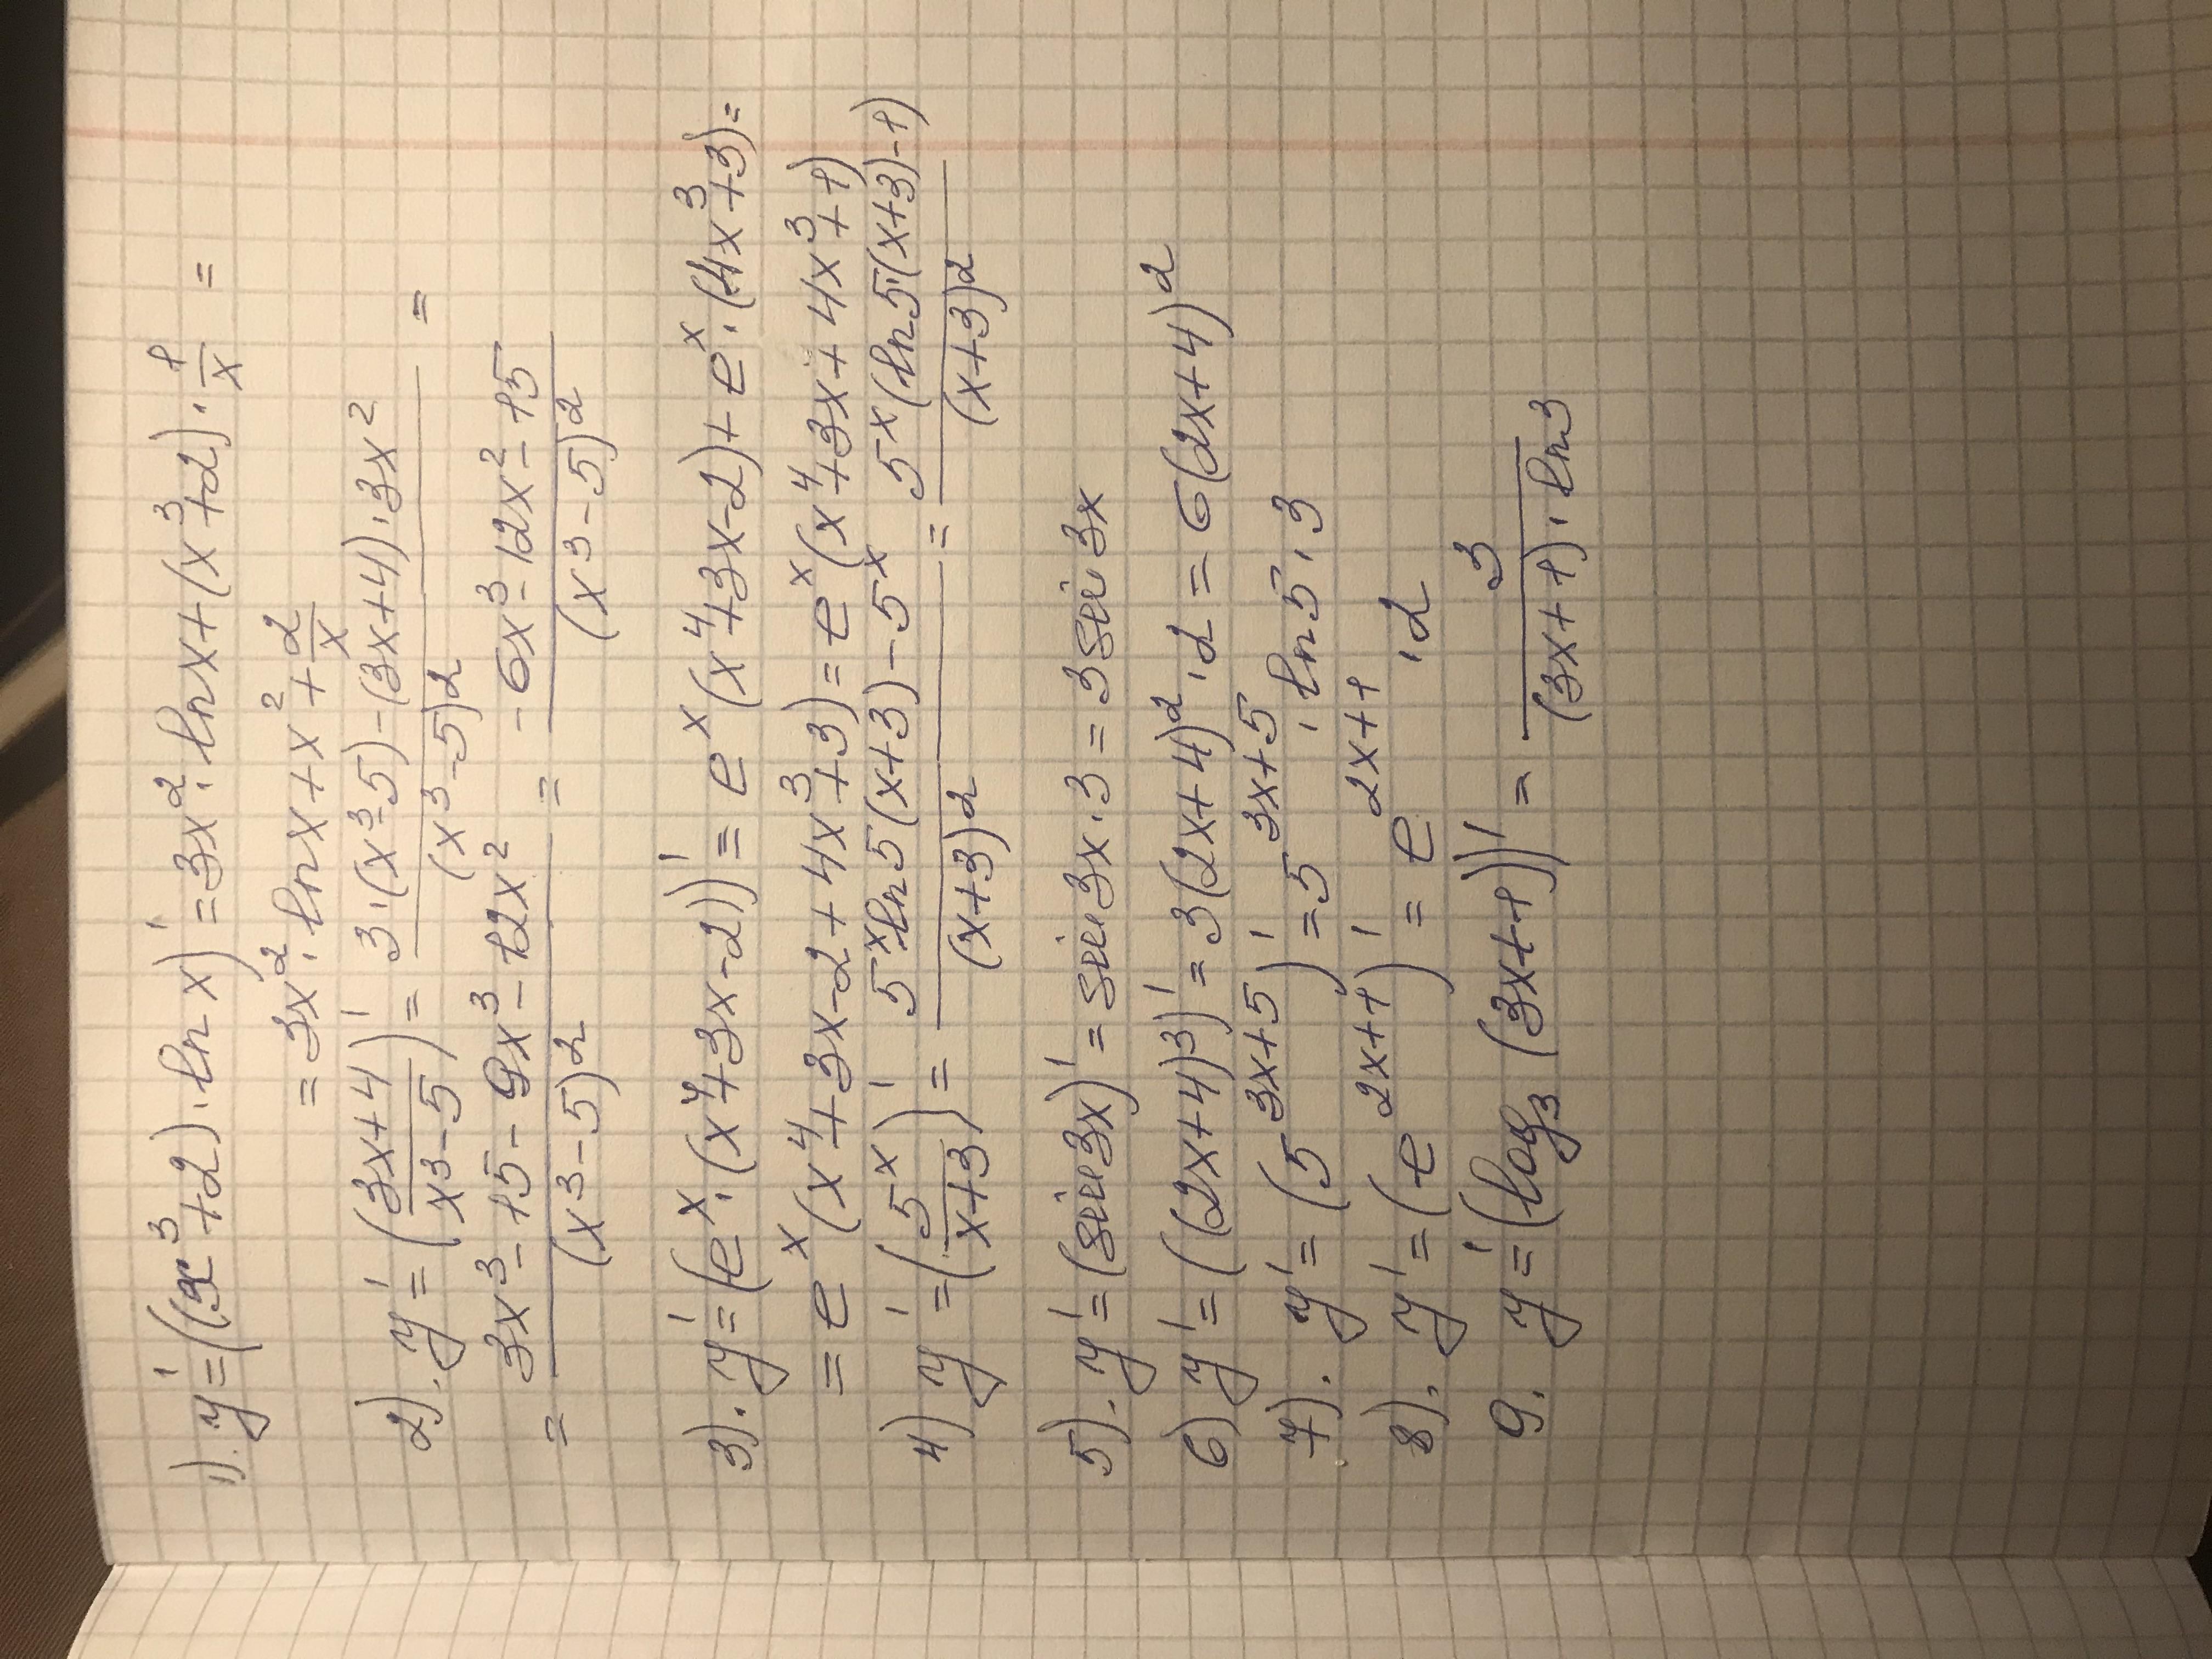 1). y' = ((x³+2)·ln x)' = 3x²·ln x + (x³+2)·1/x =
= 3x²·ln x + x² + 2/x
2). y' = ((3x+4)/(x³-5))' = (3·(x³-5)-(3x+4)·3x²)/(x³-5)² =
= (3x³-15-9x³-12x²)/(x³-5)² = (-6x³-12x²-15)/(x³-5)²
3). y' = (eˣ·(x⁴+3x-2))' = eˣ(x⁴+3x-2)+eˣ·(4x³+3)=
= eˣ(x⁴+3x-2+4x³+3) = eˣ(x⁴+3x+4x³+1)
4) y' = (5ˣ/(x+3))' = (5ˣ·ln5(x+3)-5ˣ)/(x+3)² = 5ˣ(ln5·(x+3)-1)/(x+3)²
5). y' = (sin3x)' = sin3x·3 = 3sin3x
6) y' = ((2x+4)³)' = 3(2x+4)²·2 = 6(2x+4)²
7). y' = (5³ˣ⁺⁵)' = 5³ˣ⁺⁵·ln5·3
8). y' = (e²ˣ⁺¹)' = e²ˣ⁺¹·2
9. y' = (log₃(3x+1))' = 3/((3x+1)·ln3)